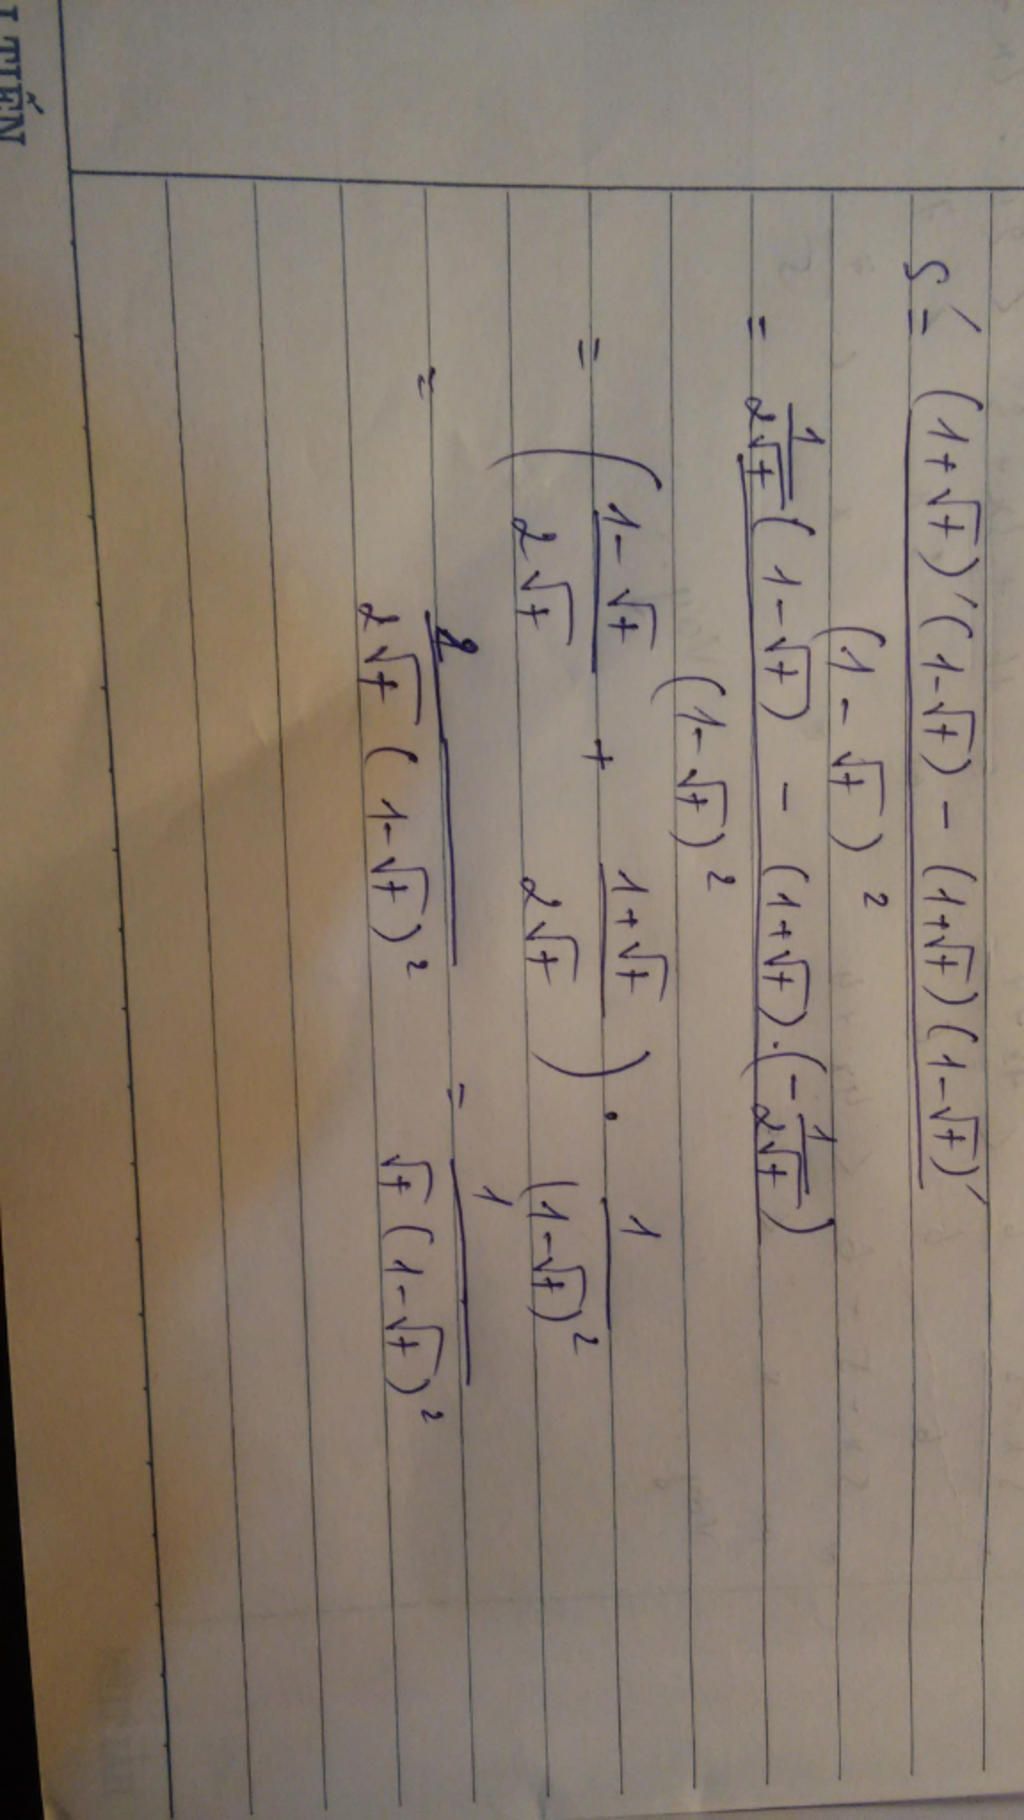 S' = \frac{(1+\sqrt{t})'(1-\sqrt{t}) - (1+\sqrt{t})(1-\sqrt{t})'}{(1-\sqrt{t})^2}
= \frac{\frac{1}{2\sqrt{t}}(1-\sqrt{t}) - (1+\sqrt{t}).(-\frac{1}{2\sqrt{t}})}{(1-\sqrt{t})^2}
= (\frac{1-\sqrt{t}}{2\sqrt{t}} + \frac{1+\sqrt{t}}{2\sqrt{t}}) . \frac{1}{(1-\sqrt{t})^2}
= \frac{2}{2\sqrt{t}(1-\sqrt{t})^2} = \frac{1}{\sqrt{t}(1-\sqrt{t})^2}
TIẾN